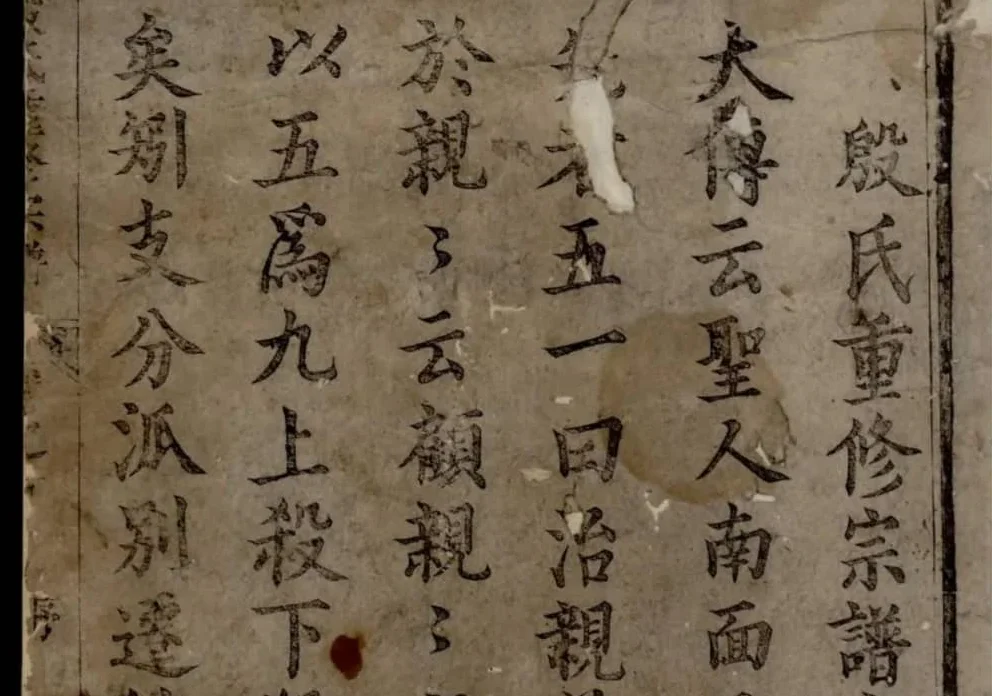 殷氏重修宗譜
大傳云聖人南面
先者五一曰治親
於親〻云顧親〻
以五為九上殺下
矣矧支分派別遷